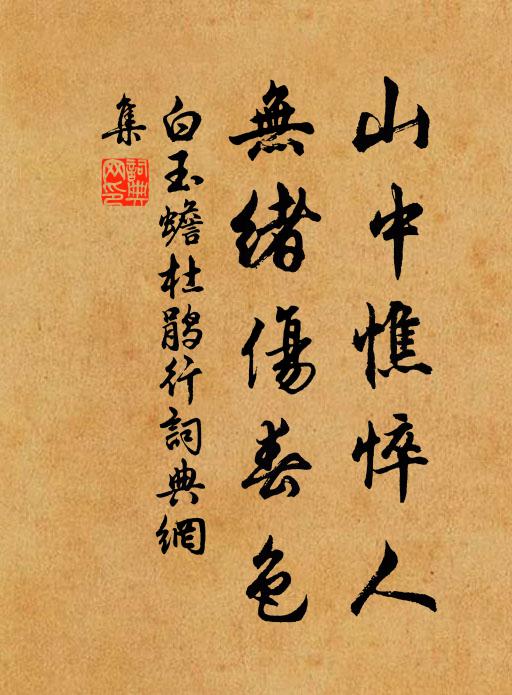 山中憔悴人
無緒傷春色
白玉蟾杜鹃行詞典網
集
詞典网印